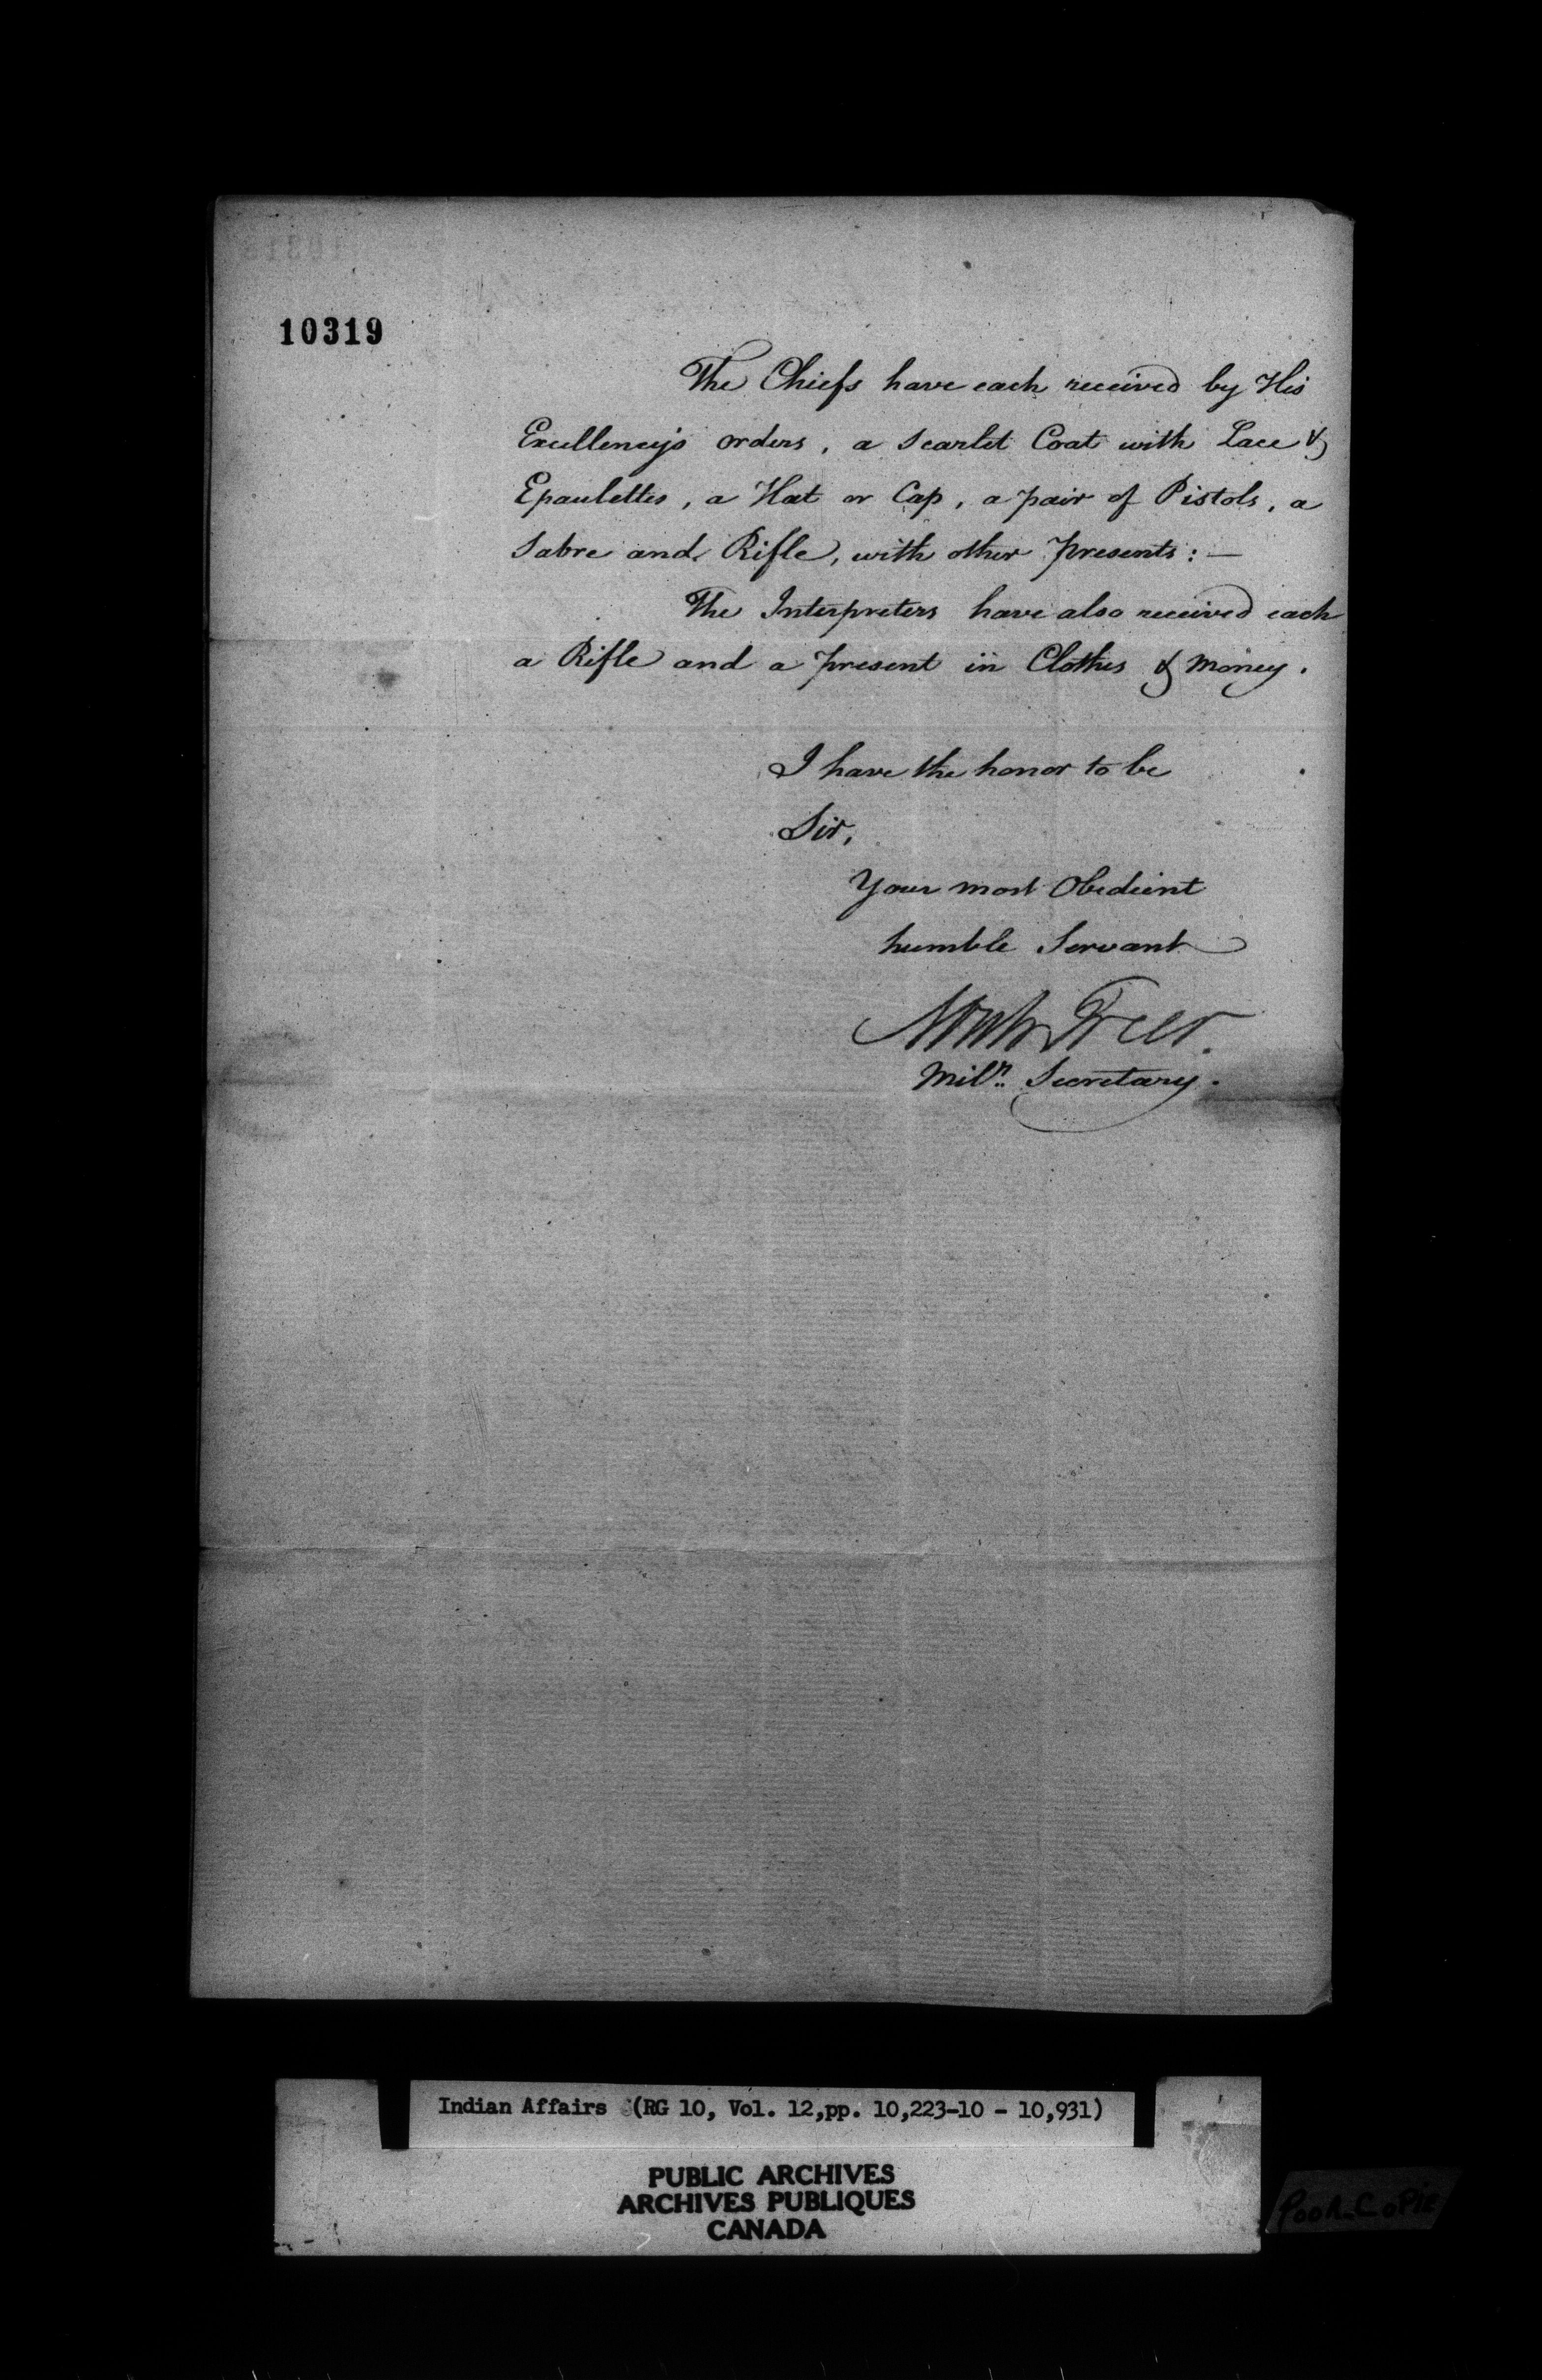 10319
The Chiefs have each received by His
Excellency's orders, a Scarlet Coat with Lace &
Epaulettes, a Hat or Cap, a pair of Pistols, a
Sabre and Rifle, with other presents: —
The Interpreters have also received each
a Rifle and a present in Clothes & Money.
I have the honor to be
Sir,
Your most Obedient
humble Servant
Noah Freer.
Mily. Secretary.
Indian Affairs (RG 10, Vol. 12,pp. 10,223-10 - 10,931)
PUBLIC ARCHIVES
ARCHIVES PUBLIQUES
CANADA